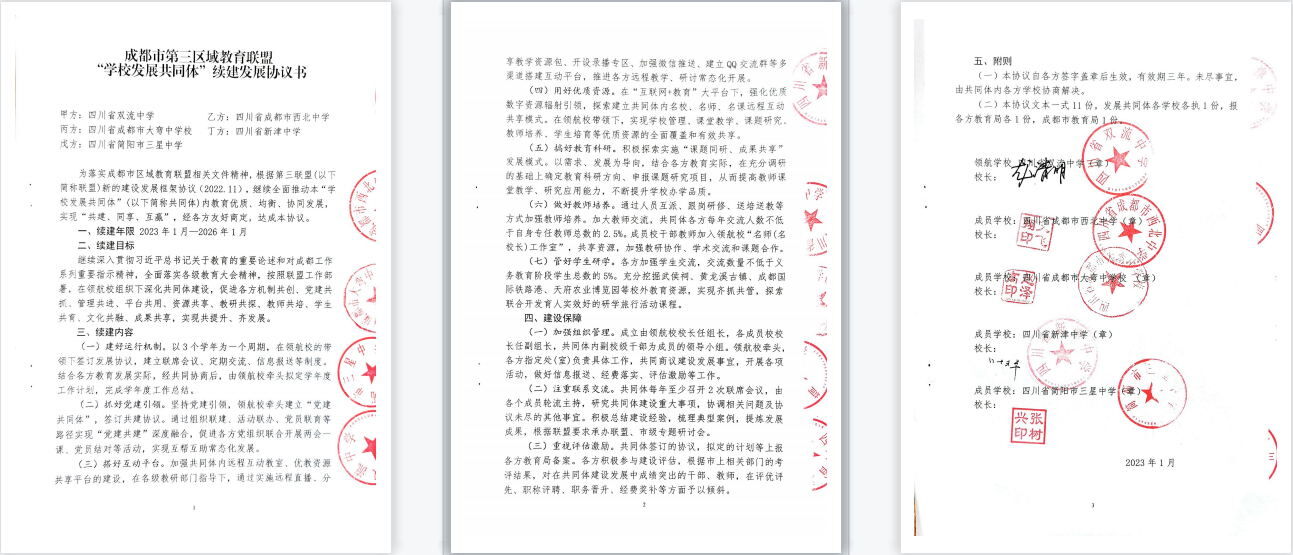 成都市第三区域教育联盟
“学校发展共同体”续建发展协议书
甲方：四川省双流中学 乙方：四川省成都市西北中学
丙方：四川省成都市大弯中学校 丁方：四川省新津中学
戊方：四川省简阳市三星中学
为落实成都市区域教育联盟相关文件精神，根据第三联盟（以下
简称联盟）新的建设发展框架协议（2022.11），继续全面推动本“学
校发展共同体”（以下简称共同体）内教育优质、均衡、协同发展，
实现“共建、同享、互赢”，经各方友好商定，达成本协议。
一、续建年限 2023 年 1 月—2026 年 1 月
二、续建目标
继续深入贯彻习近平总书记关于教育的重要论述和对成都工作
系列重要指示精神，全面落实各级教育大会精神，按照联盟工作部
署，在领航校组织下深化共同体建设，促进各方机制共创、党建共
抓、管理共进、平台共用、资源共享、教研共探、教师共培、学生
共育、文化共融、成果共享，实现共提升、齐发展。
三、续建内容
（一）建好运行机制。以 3 个学年为一个周期，在领航校的带
领下签订发展协议，建立联席会议、定期交流、信息报送等制度。
结合各方教育发展实际，经共同协商后，由领航校牵头拟定学年度
工作计划，完成学年度工作总结。
（二）抓好党建引领。坚持党建引领，领航校牵头建立“党建
共同体”，签订共建协议。通过组织联建、活动联办、党员联育等
路径实现“党建共建”深度融合，促进各方党组织联合开展两会一
课、党员结对等活动，实现互帮互助常态化发展。
（三）搭好互动平台。加强共同体内远程互动教室、优教资源
共享平台的建设，在各级教研部门指导下，通过实施远程直播、分
1
享教学资源包、开设录播专区、加强微信推送、建立 QQ 交流群等多
渠道搭建互动平台，推进各方远程教学、研讨常态化开展。
（四）用好优质资源。在“互联网+教育”大平台下，强化优质
数字资源辐射引领，探索建立共同体内名校、名师、名课远程互动
共享模式。在领航校带领下，实现学校管理、课堂教学、课题研究、
教师培养、学生培育等优质资源的全面覆盖和有效共享。
（五）搞好教育科研。积极探索实施“课题同研、成果共享”
发展模式。以需求、发展为导向，结合各方教育实际，在充分调研
的基础上确定教育科研方向、申报课题研究项目，从而提高教师课
堂教学、研究应用能力，不断提升学校办学品质。
（六）做好教师培养。通过人员互派、跟岗研修、送培送教等
方式加强教师培养。加大教师交流，共同体各方每年交流人数不低
于自身专任教师总数的 2.5%。成员校干部教师加入领航校“名师(名
校长)工作室”，共享资源，加强教研协作、学术交流和课题合作。
（七）管好学生研学。各方加强学生交流，交流数量不低于义
务教育阶段学生总数的 5%。充分挖掘武侯祠、黄龙溪古镇、成都国
际铁路港、天府农业博览园等校外教育资源，实现齐抓共管，探索
联合开发育人实效好的研学旅行活动课程。
四、建设保障
（一）加强组织管理。成立由领航校校长任组长，各成员校校
长任副组长，共同体内副校级干部为成员的领导小组。领航校牵头，
各方指定处(室)负责具体工作，共同商议建设发展事宜，开展各项
活动，做好信息报送、经费落实、评估激励等工作。
（二）注重联系交流。共同体每年至少召开 2 次联席会议，由
各个成员校轮流主持，研究共同体建设重大事项，协调相关问题及协
议未尽的其他事宜。积极总结建设经验，梳理典型案例，提炼发展
成果，根据联盟要求承办联盟、市级专题研讨会。
（三）重视评估激励。共同体签订的协议，拟定的计划等上报
各方教育局备案。各方积极参与建设评估，根据市上相关部门的考
评结果，对在共同体建设发展中成绩突出的干部、教师，在评优评
先、职称评聘、职务晋升、经费奖补等方面予以倾斜。
2
五、附则
（一）本协议自各方签字盖章后生效，有效期三年。未尽事宜，
由共同体内各方学校协商解决。
（二）本协议文本一式 11 份，发展共同体各学校各执 1 份，报
各方教育局各 1 份，成都市教育局 1 份。
领航学校：四川省双流中学（章）
校长：
成员学校：四川省成都市西北中学（章）
校长：
成员学校：四川省成都市大弯中学校（章）
校长：
成员学校：四川省新津中学（章）
校长：
成员学校：四川省简阳市三星中学（章）
校长：
张树
兴印
2023 年 1 月
3